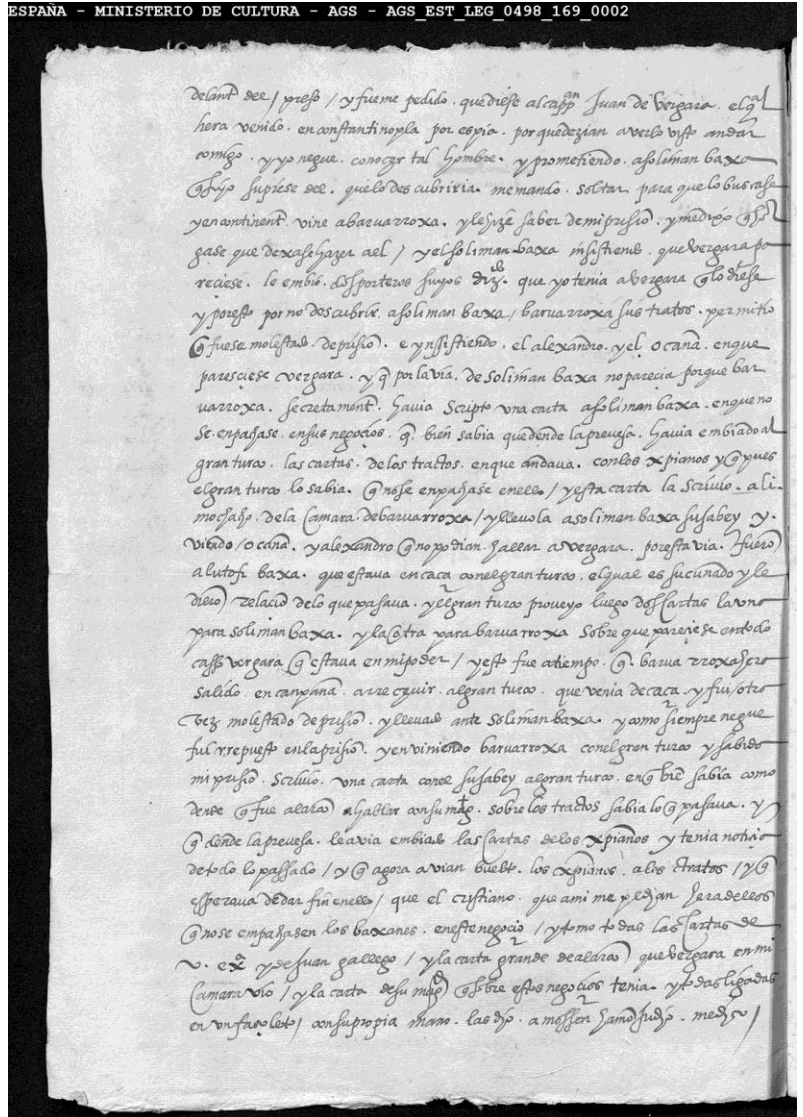 ESPAÑA - MINISTERIO DE CULTURA - AGS - AGS_EST_LEG_0498_169_0002
delant del / preso / y fueme pedido. que diese al capp an Juan de Vergara. el q al
hera venido. en constantinopla por espia. por que dezian averlo visto andar
comigo. y yo negue. conoçer tal hombre. y prometiendo. a soliman baxa
q si yo supiese del. que lo descubriria. me mando. soltar. para que lo buscase
y en continent. vine a barvarroxa. y le hize saber de mi prisio. y me dixo
gase que dexase hazer a el / y el soliman baxa insistiendo. que vergara pa
reciese. le embio. dos porteros suyos diz. que yo tenia a vergara q lo diese
y por esto por no descubrir. a soliman baxa / barvarroxa sus tratos. permitio
q fuese molestado. de prisio. e ynsistiendo. el alexandro. y el ocaña. en que
paresciese vergara. y q por la via. de Soliman baxa no parecia porque bar
varroxa. secretament. havia scripto una carta a soliman baxa. en que no
se enpachase. en sus negocios. q. bien sabia que dende la prevesa. havia embiado al
gran turco. las cartas. de los tractos. en que andava. con los xpianos y q pues
el gran turco lo sabia. q no se enpachase en ello / y esta carta la scrivio. ali
de la camara. de barvarroxa / y llevola a soliman baxa susabey y.
viendo / ocaña. y alexandro q no podian hallar a vergara. por esta via. fuero
a lutofi baxa. que estava en caça con el gran turco. el qual es su cuñado y le
diero relacio de lo que pasava. y el gran turco proveyo luego dos cartas la una
para soliman baxa. y la otra para barvarroxa sobre que pareciese en todo
caso vergara q estava en mi poder / y esto fue a tiempo. q. barvarroxa hera
salido. en canpaña. a rreçevir. al gran turco. que venia de caça y fui / otra
vez molestado de prisio. y llevado ante Soliman baxa. y como siempre negue
fui rrepuesto en la prisio. y en viniendo barvarroxa con el gran turco y sabido
mi prisio. Scrivio. una carta con el susabey al gran turco. en q bie sabia como
dende q fue alarco a hablar con su mag. sobre los tractos sabia lo q pasava. y
q dende la prevesa. le avia embiado las cartas de los xpianos y tenia noticia
de todo lo passado / y q agora avian buelto. los xpianos. a los tratos / y q
esperava de dar fin en ello / que el cristiano. que a mi me pedian hera dellos
q no se empachasen los baxanes. en este negocio / y tomo todas las cartas de
v. ex a y de Juan gallego / y la carta grande de alarco que vergara en mi
camara vio / y la carta de su mag q sobre estos negocios tenia. y todas ligadas
en un façoleto / con su propia mano. las dio. a mossen hamo judio. medico /